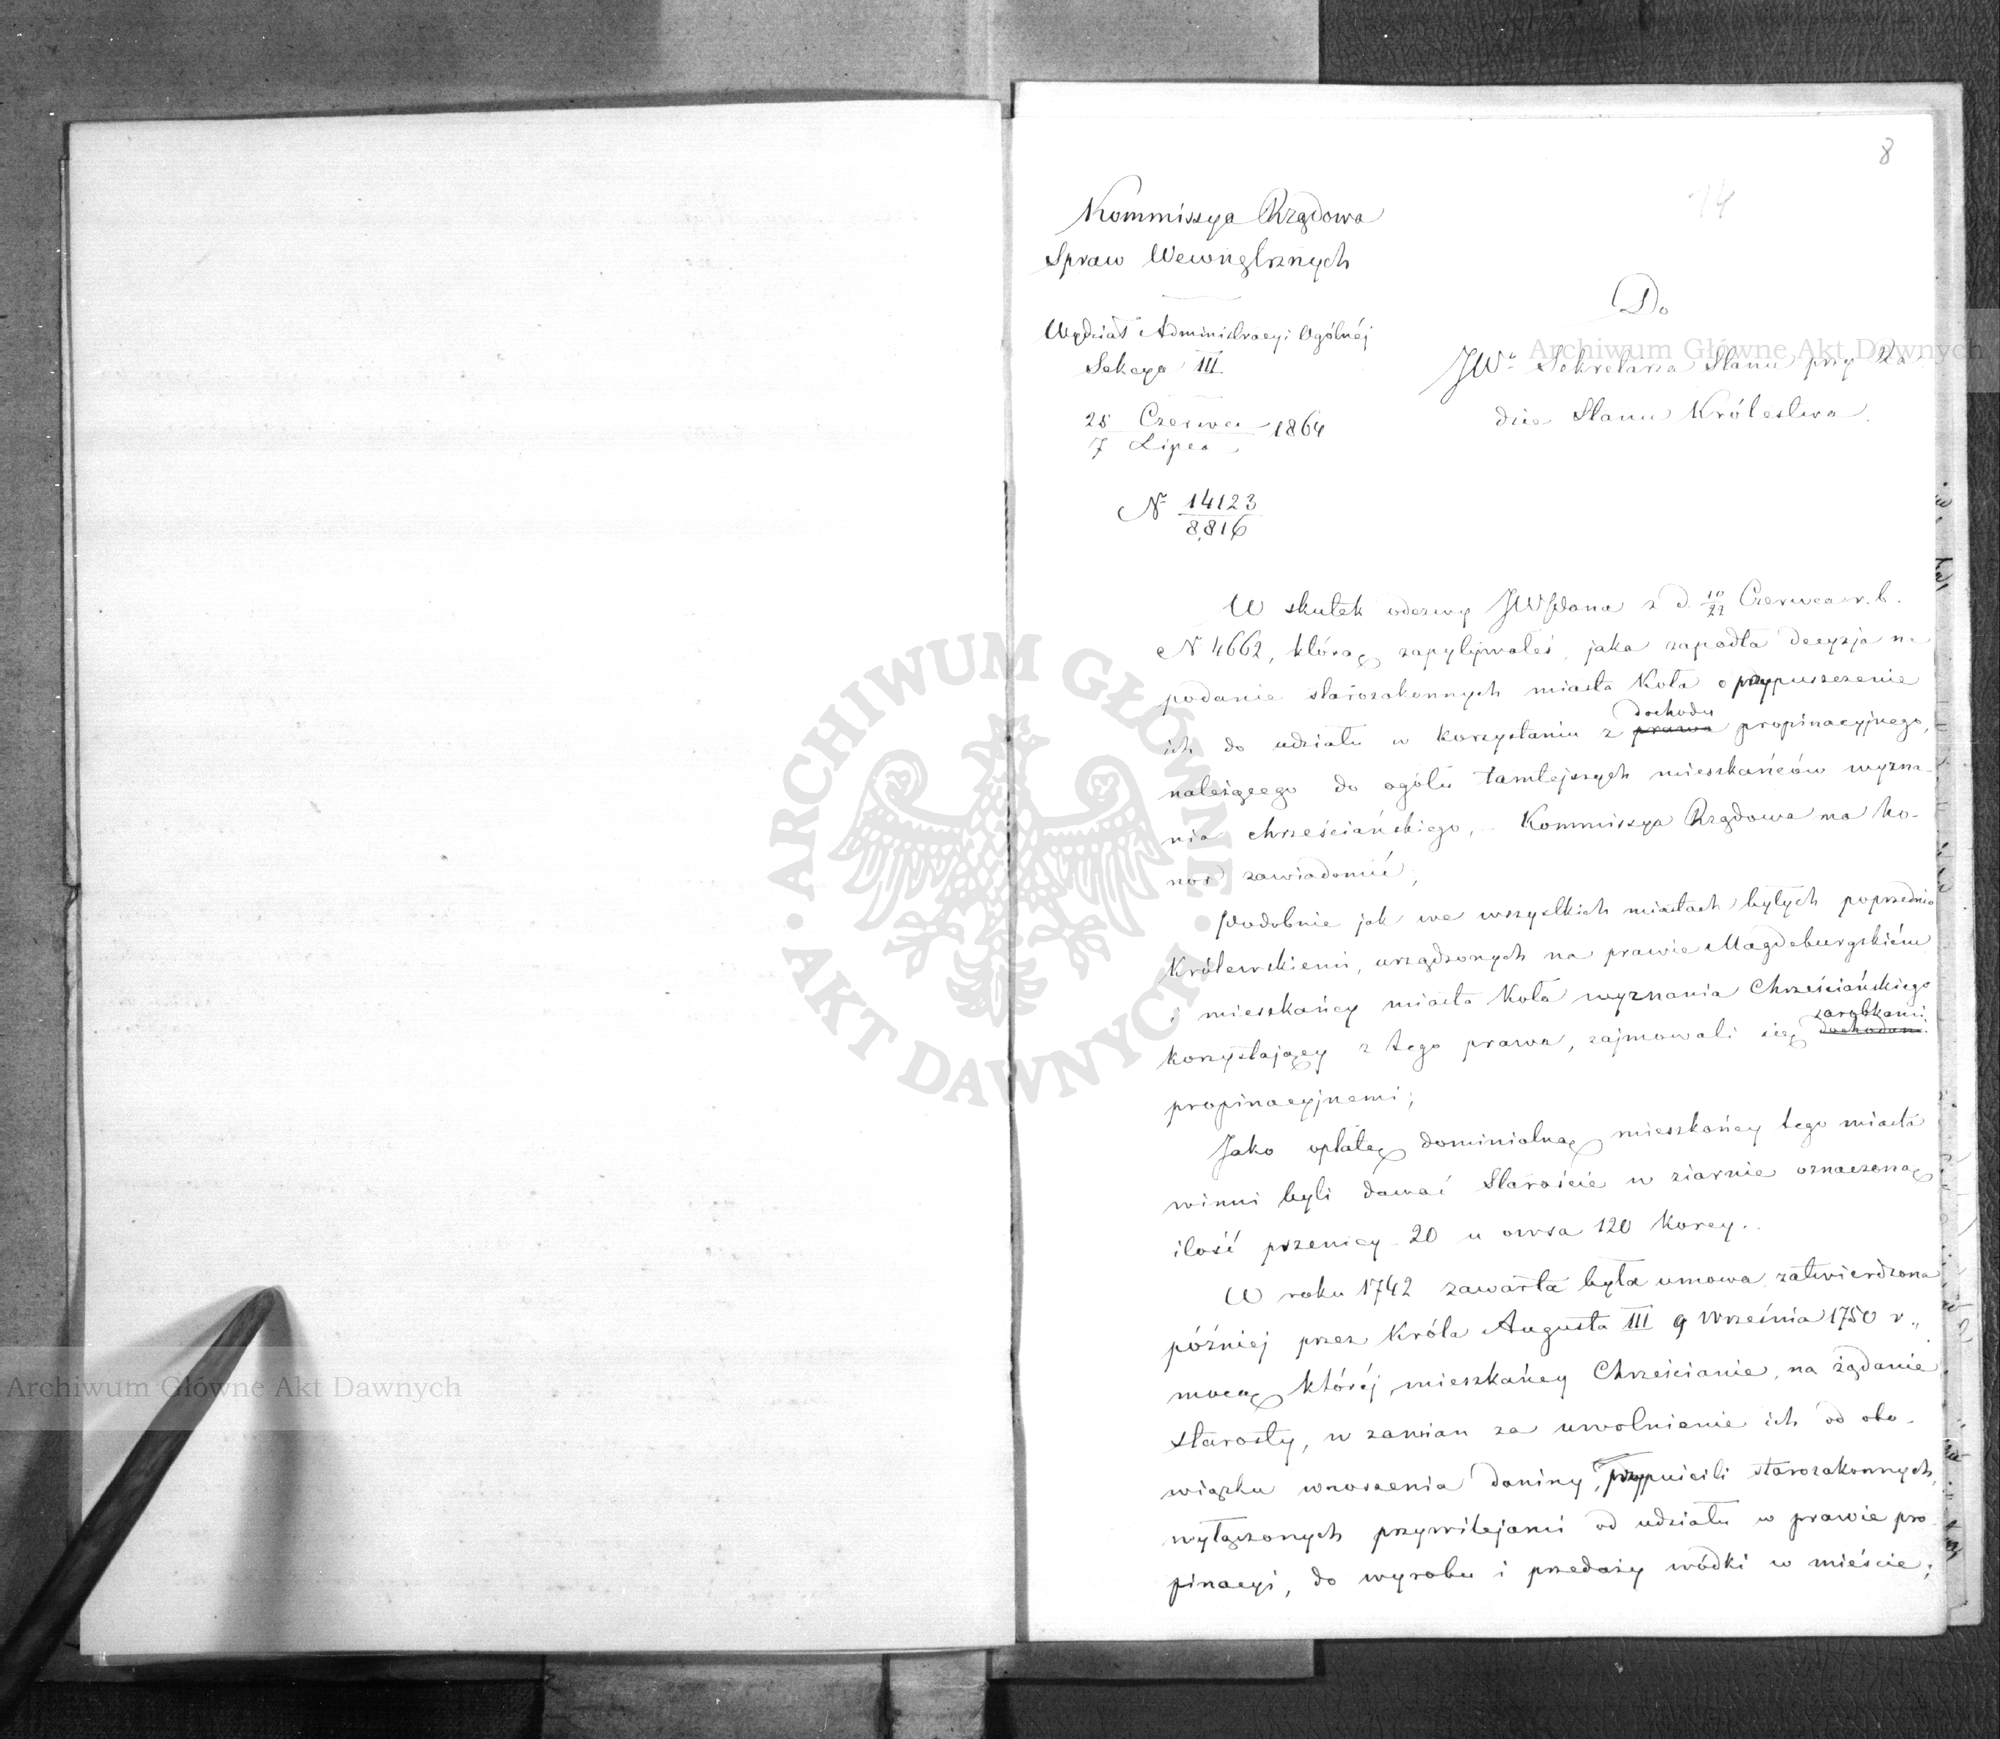 8
14
Kommissya Rządowa
Spraw Wewnętrznych
Wydział Administracyi Ogólnéj
Sekcya III
25 Czerwca
7 Lipca 1864
№ 14123
8,816
Do
JWo Sekretarza Stanu przy Ra
dzie Stanu Królestwa.
W skutek odezwy JWPana z d. 10/22 Czerwca r.b.
N 4662, którą zapytywałeś, jaka zapadła decyzja na
podanie starozakonnych miasta Koła o przypuszczenie
dochodu
ich do udziału w korzystaniu z prawa propinacyjnego,
należącego do ogółu tamtejszych mieszkańców wyzna-
nia chrześciańskiego, – Kommissya Rządowa ma ho-
nor zawiadomić,
Podobnie jak we wszystkich miastach byłych poprzednio
Królewskiemi, urządzonych na prawie Magdeburgskiém
i mieszkańcy miasta Koła wyznania Chrześciańskiego
zarobkami
korzystający z tego prawa, zajmowali się dochodami
propinacyjnemi;
Jako opłatę dominialną mieszkańcy tego miasta
winni byli dawać Staroście w ziarnie oznaczoną
ilość pszenicy 20 a owsa 120 Korcy.
W roku 1742 zawarta była umowa zatwierdzona
później przez Króla Augusta III 9 Września 1750 r.,
mocą któréj mieszkańcy Chrześcianie, na żądanie
starosty, w zamian za uwolnienie ich od obo-
wiązku wnoszenia daniny, przypuścili starozakonnych,
wyłączonych przywilejami od udziału w prawie pro
pinacyi, do wyrobu i przedaży wódki w mieście;
ARCHIWUM GŁÓWNE · AKT DAWNYCH ·
Archiwum Główne Akt Dawnych
Archiwum Główne Akt Dawnych